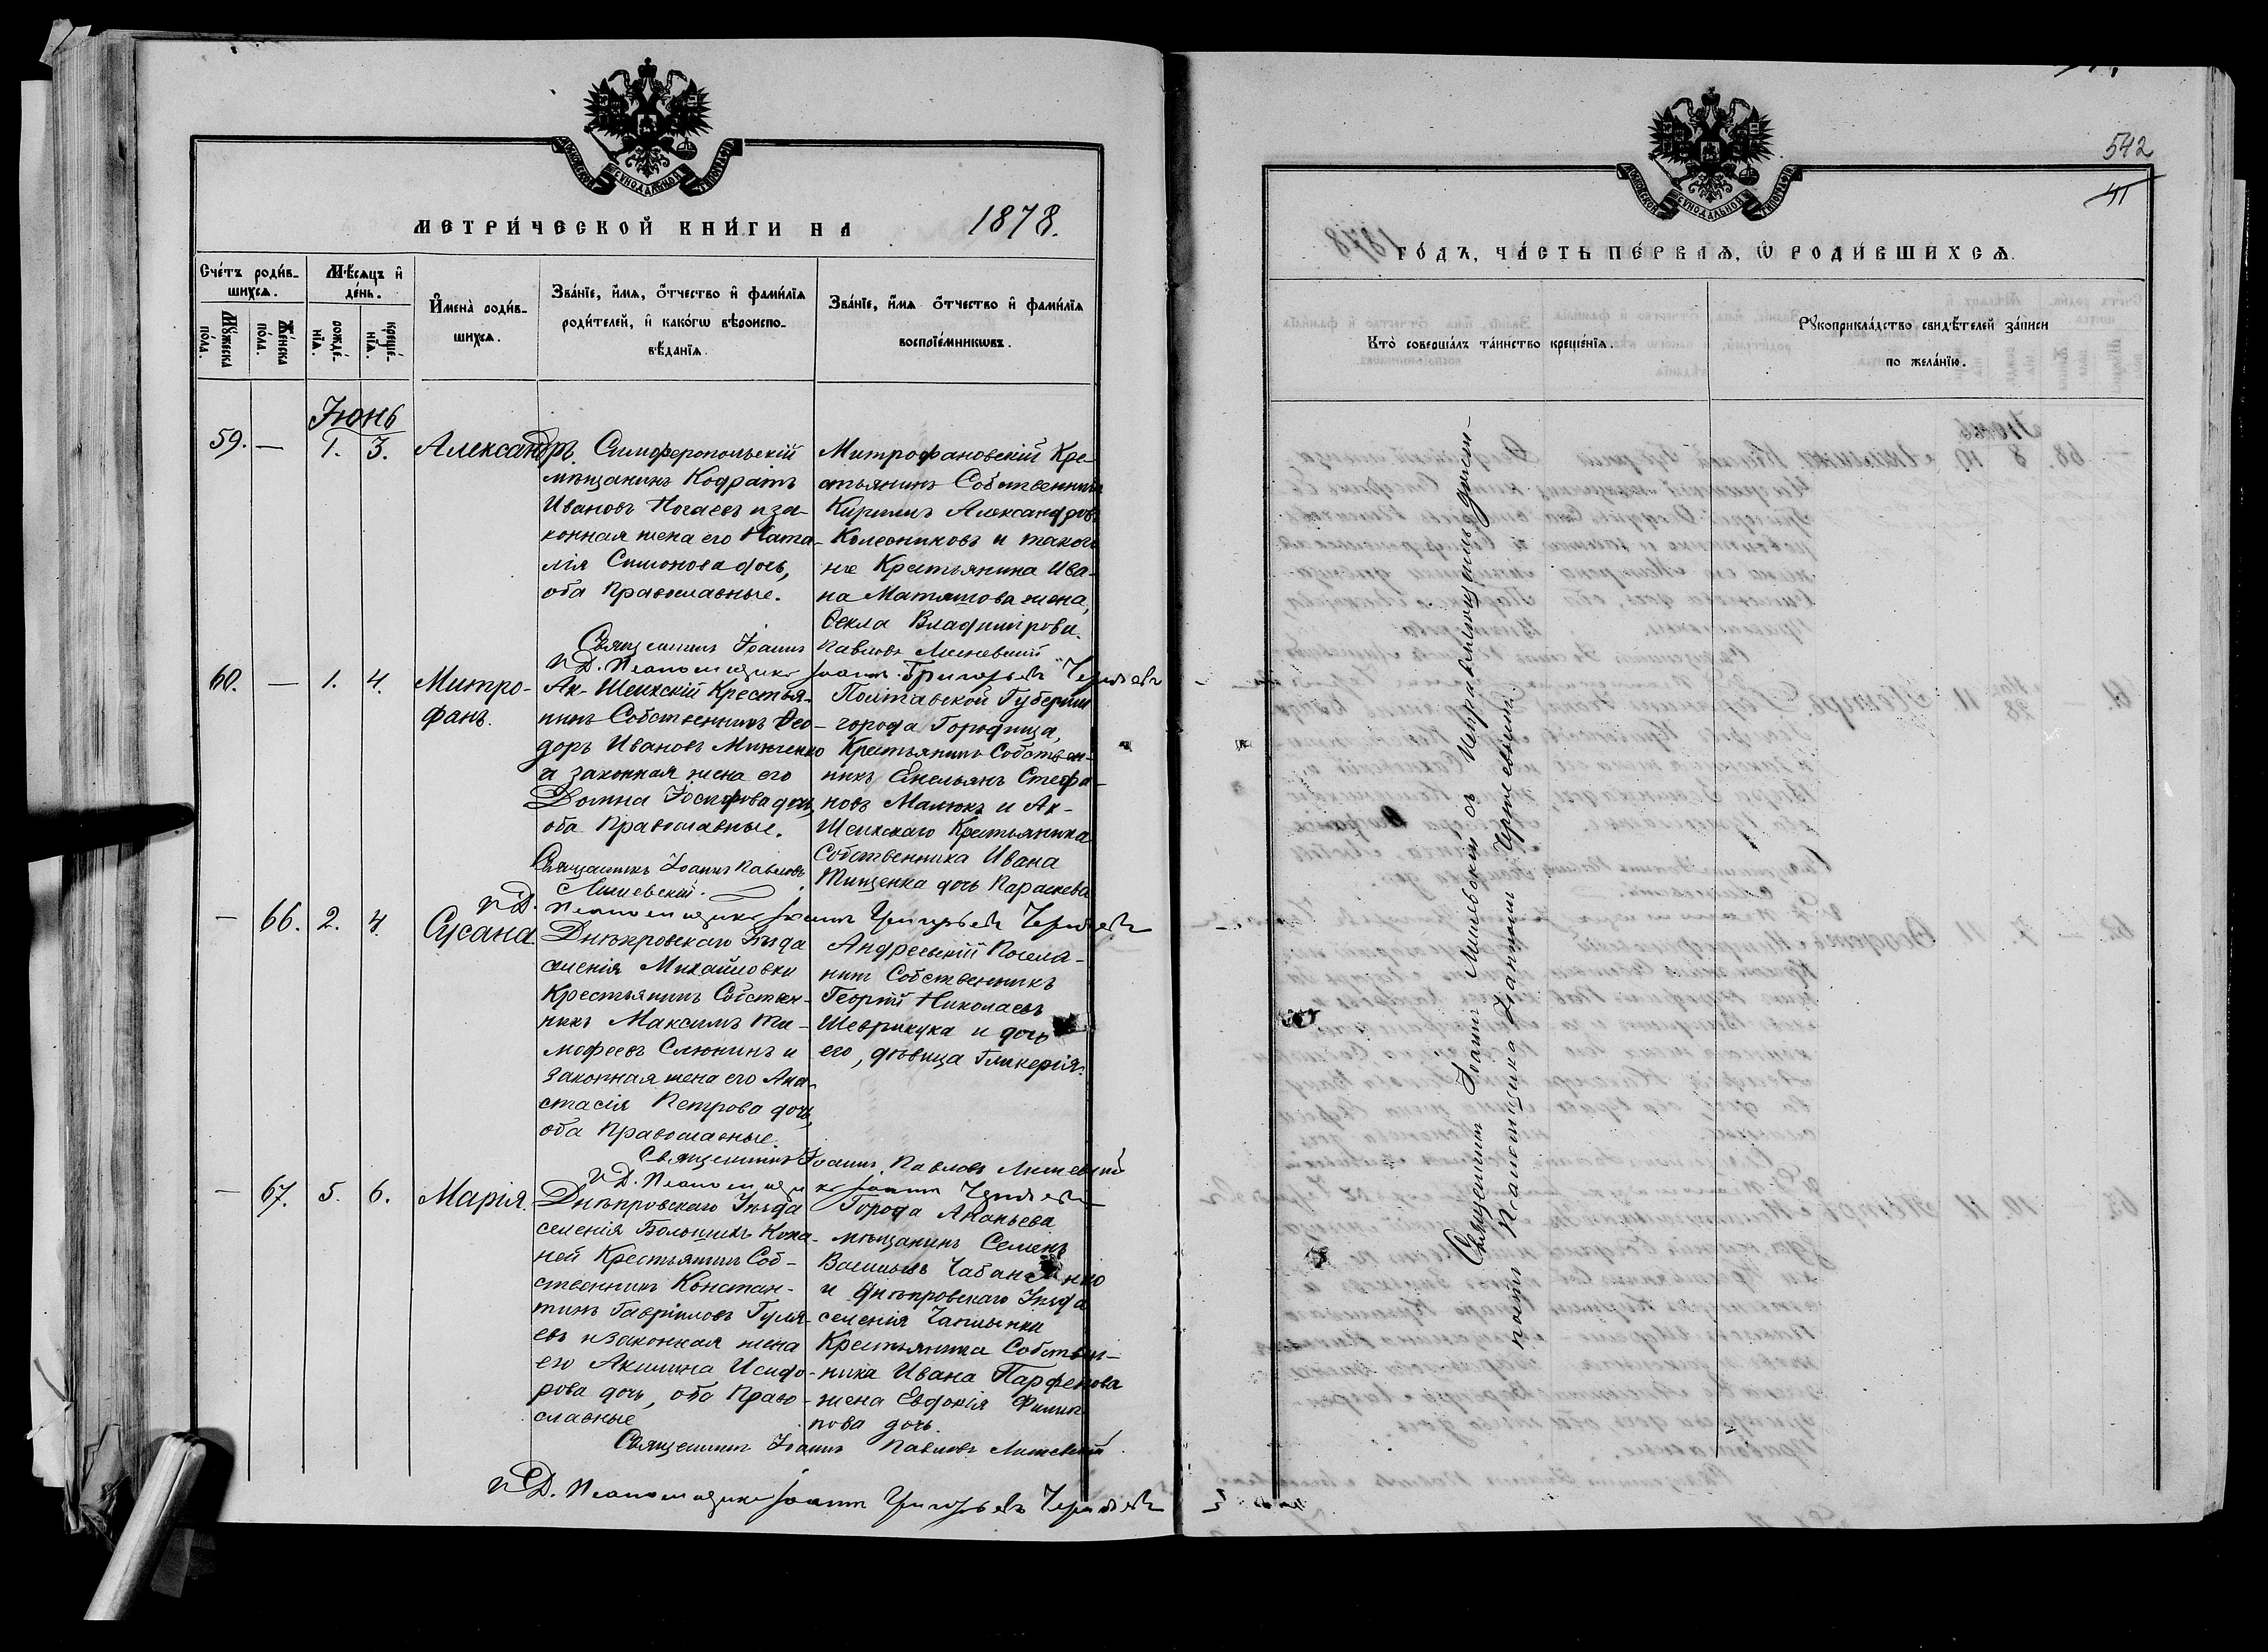 МОСКОВСКОЙ СѴНОДАЛЬНОЙ ТИПОГРАФІИ
МЕТРИ́ЧЕСКОЙ КНИ́ГИ НА 1878.
Сче́тъ роди́в-
шихсѧ.
Мѣ́сѧцъ и҆
де́нь.
Мꙋ́жеска
по́ла.
Же́нска
по́ла.
рожде́-
нїѧ.
креще́-
нїѧ.
И҆мена̀ роди́в-
шихсѧ.
Зва́нїе, и҆́мѧ, ѻ҆́тчество и҆ фами́лїѧ
роди́телей, и҆ како́гѡ вѣроиспо-
вѣ́данїѧ.
Зва́нїе, и҆́мѧ ѻ҆́тчество и҆ фами́лїѧ
воспрїе́мникѡвъ.
Іюнь
59. — 1. 3. Александръ.
Симферопольскій
мѣщанинъ Кодратъ
Ивановъ Ногаевъ и за-
конная жена его Ната-
лія Симонова дочь,
оба Православные.
Митрофановскій Кре-
стьянинъ Собственникъ
Кириллъ Александровъ
Колесниковъ и такого
же Крестьянина Ива-
на Маташова жена,
Ѳекла Владимірова.
Священникъ Іоаннъ Павловъ
И Д. Псаломщика Іоаннъ Григорьевъ
60. — 1. 4. Митро-
фанъ.
Ак-Шеихскій Крестья-
нинъ Собственникъ Ѳео-
доръ Ивановъ Минченко
и законная жена его
Домна Іосифова дочь,
оба Православные.
Полтавской Губерніи
города Городища,
Крестьянинъ Собствен-
никъ Емельянъ Стефа-
новъ Малюкъ и Ак-
Шеихскаго Крестьянина
Собственника Ивана
Тищенка дочь Параскева
Священникъ Іоаннъ Павловъ
И Д. Псаломщика Іоаннъ Григорьевъ
— 66. 2. 4. Сусана.
Днѣпровскаго Уѣзда
селенія Михайловки
Крестьянинъ Собствен-
никъ Максимъ Ти-
мофеевъ Слюнинъ и
законная жена его Ана-
стасія Петрова дочь,
оба Православные.
Андреевскій Посела-
нинъ Собственникъ
Георгій Николаевъ
Шеврикука и дочь
его, дѣвица Гликерія.
Священникъ Іоаннъ Павловъ
И Д. Псаломщика Іоаннъ
— 67. 5. 6. Марія.
Днѣпровскаго Уѣзда
селенія Большихъ Копа-
ней Крестьянинъ Соб-
ственникъ Констан-
тинъ Гавріиловъ Гуля-
евъ и законная жена
его Акилина Исидо-
рова дочь, оба Право-
славные
Города Ананьева
мѣщанинъ Семенъ
Васильевъ Чабаненко
и Днѣпровскаго Уѣзда
селенія Чаплынки
Крестьянина Собствен-
ника Ивана Парфенова
жена Евдокія Филип-
пова дочь.
Священникъ Іоаннъ Павловъ
И Д. Псаломщика Іоаннъ Григорьевъ
542
41
МОСКОВСКОЙ СѴНОДАЛЬНОЙ ТИПОГРАФІИ
ГО́ДЪ, ЧА́СТЬ ПЕ́РВАѦ, Ѡ҆ РОДИ́ВШИХСѦ.
Кто̀ соверша́лъ та́инство креще́нїѧ.
Рꙋкоприкла́дство свидѣ́телей за́писи
по жела́нїю.
Священникъ Іоаннъ съ исправляющимъ долж-
ность Псаломщика Іоанномъ